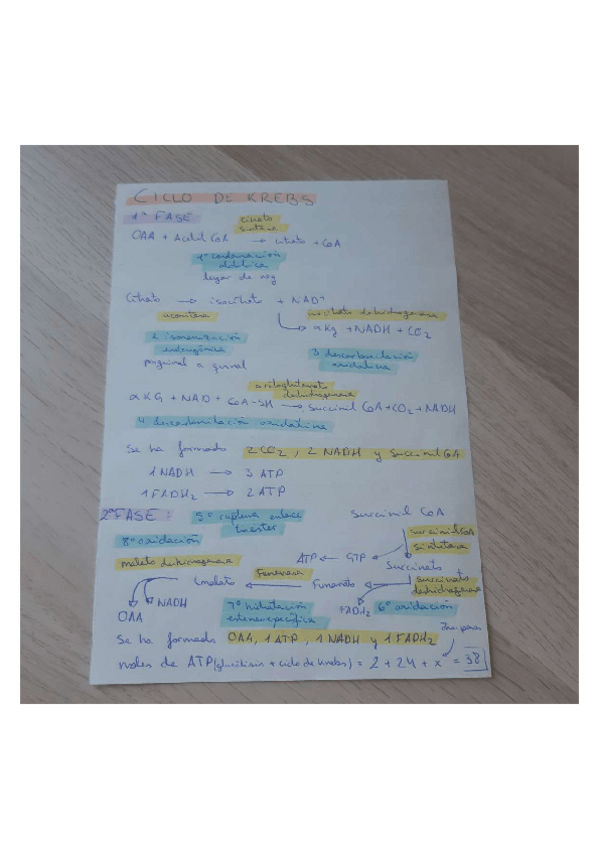 CICLO DE KREBS
1ª FASE
citrato sintasa
OAA + Acetil CoA → citrato + CoA
1ª condensación aldólica
lugar de reg
Citrato → isocitrato + NAD⁺
aconitasa
isocitrato dehidrogenasa
→ αKg + NADH + CO₂
2 isomerización
endergónica
3 descarboxilación oxidativa
proquiral a quiral
α cetoglutarato dehidrogenasa
αKG + NAD + CoA-SH → succinil CoA + CO₂ + NADH
4 descarboxilación oxidativa
Se ha formado 2CO₂, 2 NADH y succinil CoA
1 NADH → 3 ATP
1 FADH₂ → 2 ATP
2ª FASE:
5ª ruptura enlace tioester
succinil CoA
succinil CoA sintetasa
8ª oxidación
ATP ← GTP
Succinato
malato dihidrogenasa
Fumarasa
succinato dehidrogenasa
L malato ← Fumarato
NADH
FADH₂
6ª oxidación
OAA
7ª hidratación estereoespecífica
Se ha formado OAA, 1 ATP, 1 NADH y 1 FADH₂
moles de ATP (glucólisis + ciclo de Krebs) = 2 + 24 + x = 38